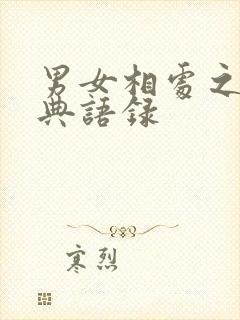 男女相處之
典語錄
寒烈